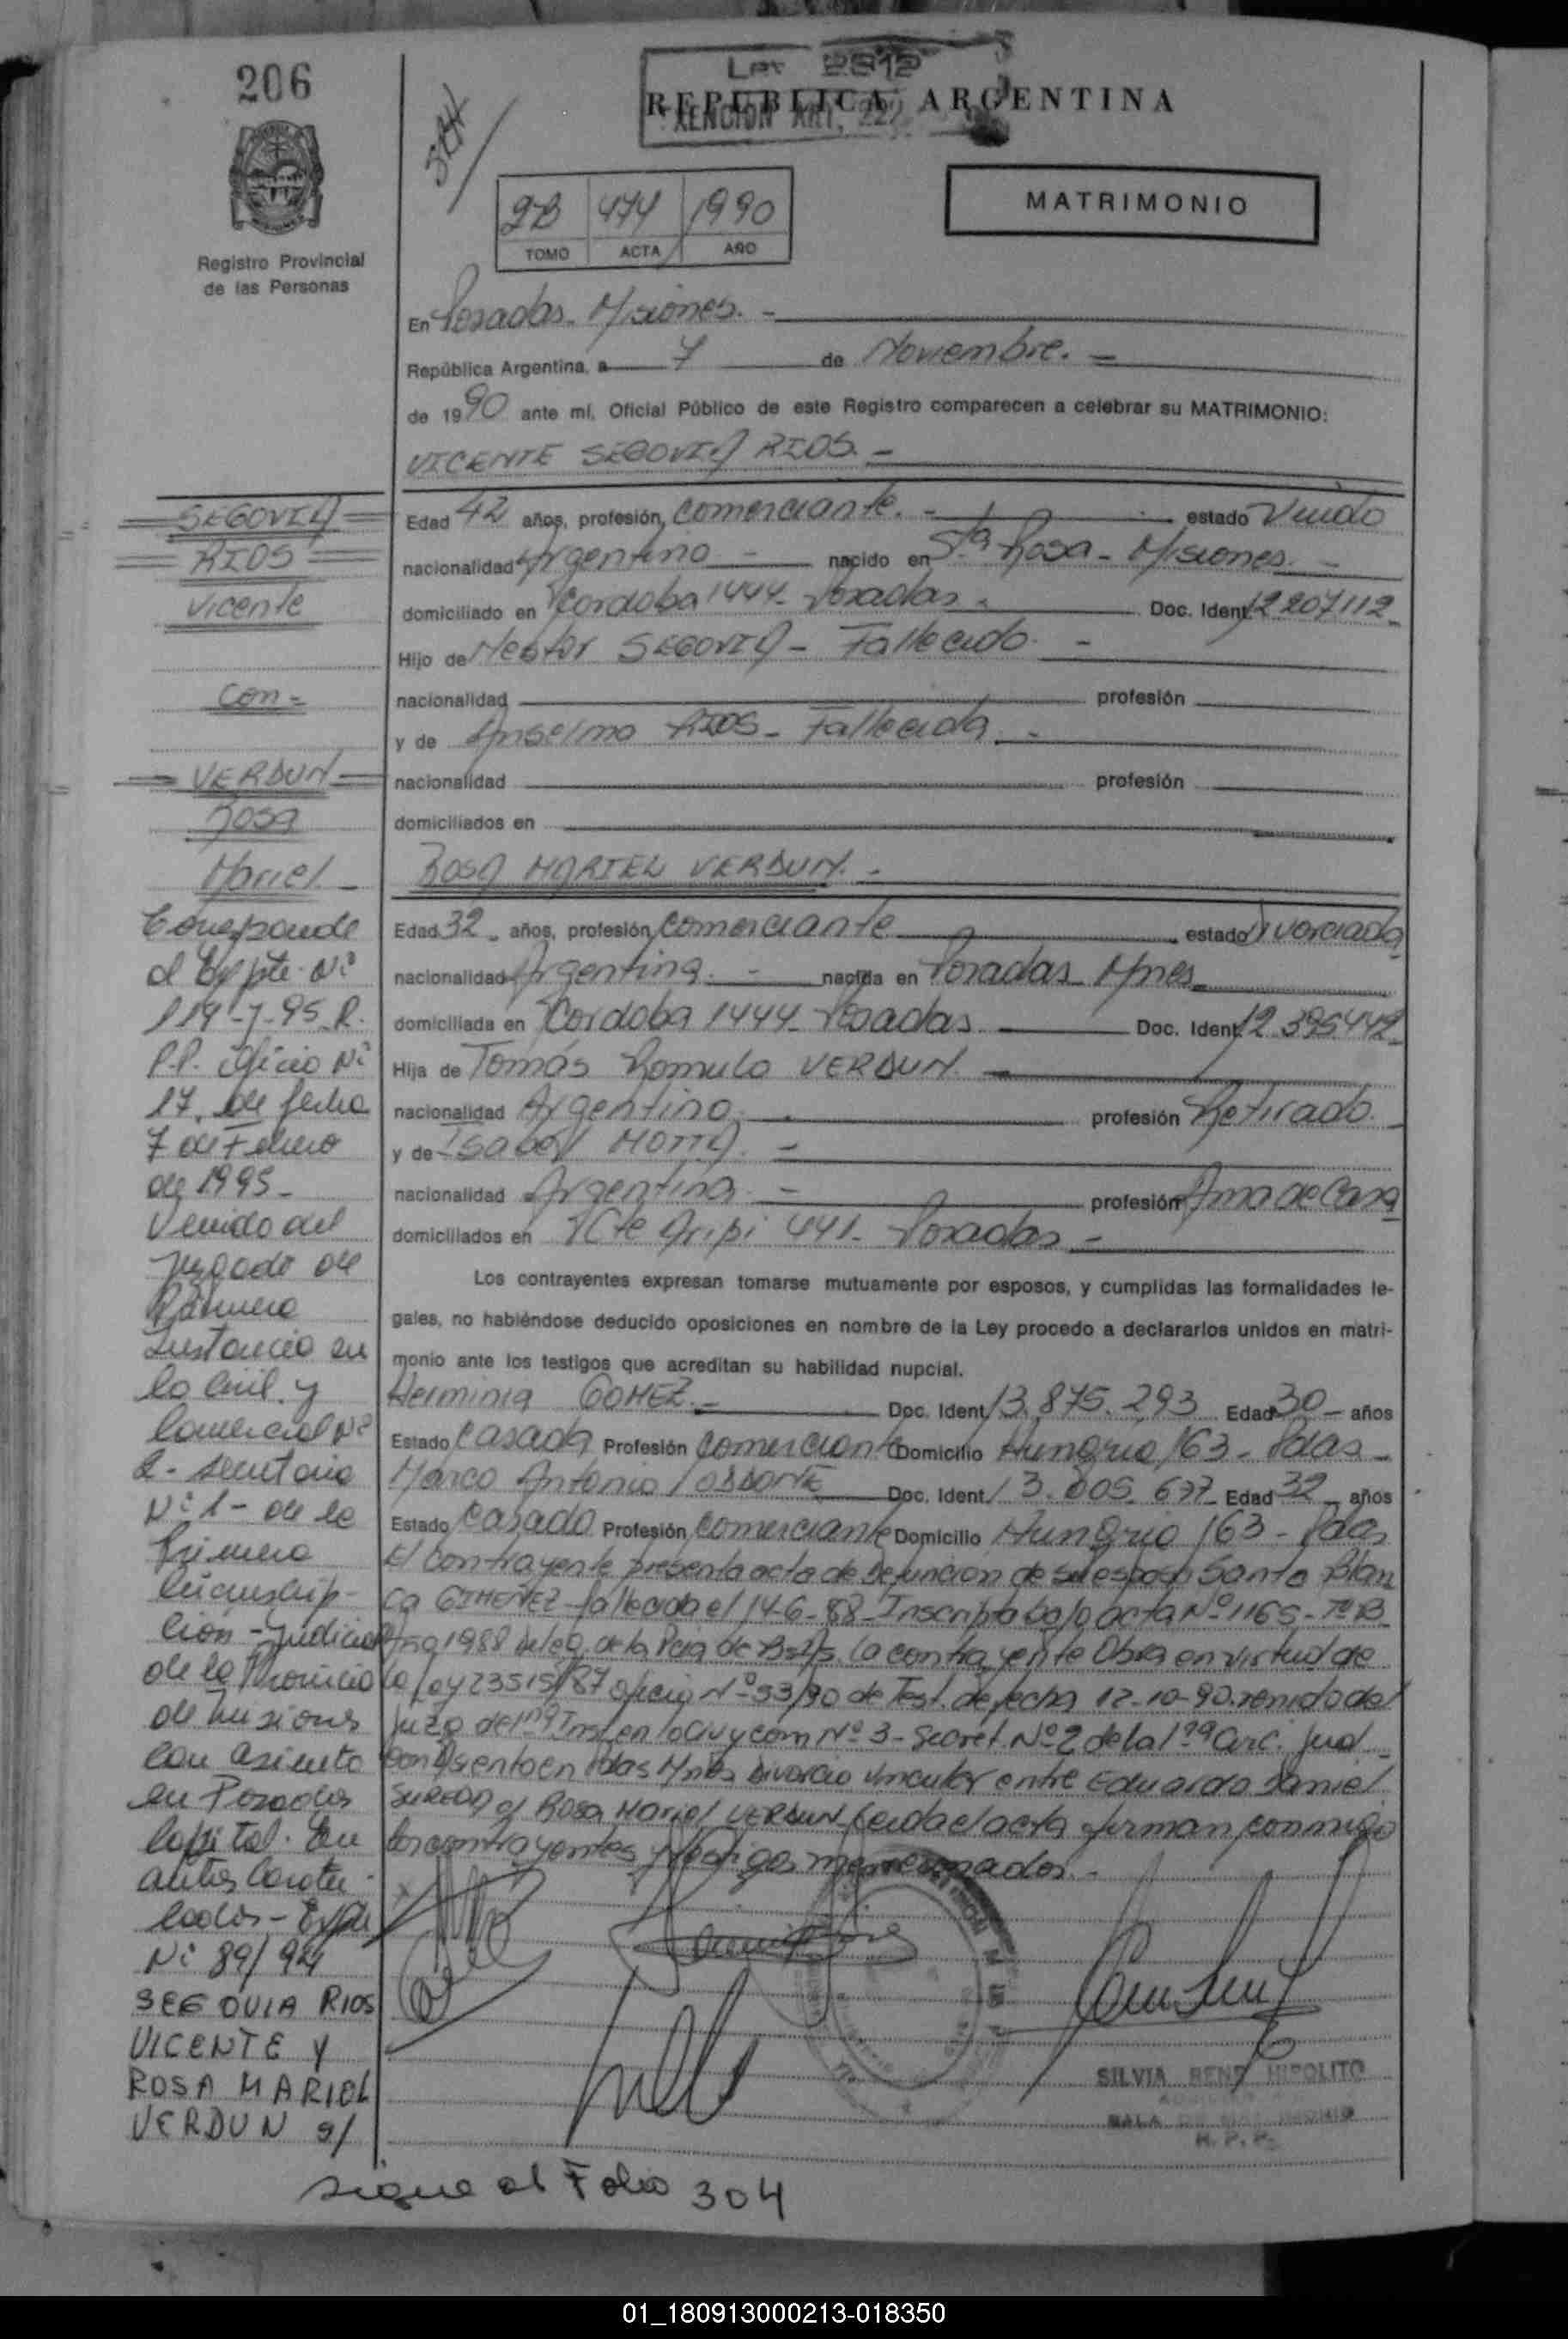 206
Ley 2812
REPUBLICA ARGENTINA
EXENCION ART. 22
Registro Provincial
de las Personas
2B 474 1990
TOMO ACTA AÑO
MATRIMONIO
En Posadas - Misiones. -
República Argentina, a 7 de Noviembre. -
de 1990 ante mí, Oficial Público de este Registro comparecen a celebrar su MATRIMONIO:
VICENTE SEGOVIA RIOS. -
Edad 42 años, profesión comerciante. - estado Viudo
nacionalidad Argentino - nacido en Sta Rosa - Misiones. -
domiciliado en Cordoba 1444 - Posadas - Doc. Ident. 12.207.112 -
Hijo de Nestor SEGOVIA - Fallecido. -
nacionalidad profesión
y de Anselma RIOS - Fallecida. -
nacionalidad profesión
domiciliados en
ROSA MARIEL VERDUN. -
Edad 32 - años, profesión comerciante estado Divorciada
nacionalidad Argentina. - nacida en Posadas Mnes
domiciliada en Cordoba 1444 - Posadas Doc. Ident. 12.395.442 -
Hija de Tomás Romulo VERDUN.
nacionalidad Argentino. profesión Retirado. -
y de Isabel MOTTA. -
nacionalidad Argentina. - profesión Ama de Casa
domiciliados en 441 - Posadas -
Los contrayentes expresan tomarse mutuamente por esposos, y cumplidas las formalidades le-
gales, no habiéndose deducido oposiciones en nombre de la Ley procedo a declararlos unidos en matri-
monio ante los testigos que acreditan su habilidad nupcial.
Herminia GOMEZ. - Doc. Ident. 13.875.293 Edad 30 - años
Estado Casada Profesión Comerciante Domicilio Hungria 163 - Pdas -
Marco Antonio Doc. Ident. 13.005.677 Edad 32 - años
Estado Casado Profesión Comerciante Domicilio Hungria 163 - Pdas
El contrayente presenta acta de Defuncion de su esposa Santa Blan
ca GIMENEZ - fallecida el 14-6-88 - Inscripta bajo acta Nº 1165 - Tº B
1988 Deleg. de la Pcia de Bs As. La contrayente Obra en virtud de
la Ley 23515/87 oficio Nº 53/90 de Test. de fecha 12-10-90. venido del
Juzg de 1ra Inst en lo Civ y Com Nº 3 - Secret. Nº 2 de la 1ra Circ. Jud -
con Asiento en Pdas Mnes Divorcio vincular entre Eduardo Daniel
SUREDA c/ Rosa Mariel VERDUN Leida el acta firman conmigo
los contrayentes y testigos mencionados. -
SILVIA HIPOLITO
SALA DE MATRIMONIO
R. P. P.
SEGOVIA
RIOS
Vicente
con -
VERDUN
Rosa
Mariel -
Corresponde
al Expte. Nº
119-7-95 R.
P.P. Oficio Nº
17. de fecha
7 de Febrero
de 1995 -
Venido del
Juzgado de
Primera
Instancia en
lo Civil y
Comercial Nº
2 - Secretaria
Nº 1 - de la
Primera
Circunscrip-
cion - Judicial
de la Provincia
de Misiones
con asiento
en Posadas
Capital. En
autos Caratu-
lados - Expte
Nº 89/94
SEGOVIA RIOS
VICENTE Y
ROSA MARIEL
VERDUN s/
sigue al Folio 304
01_180913000213-018350